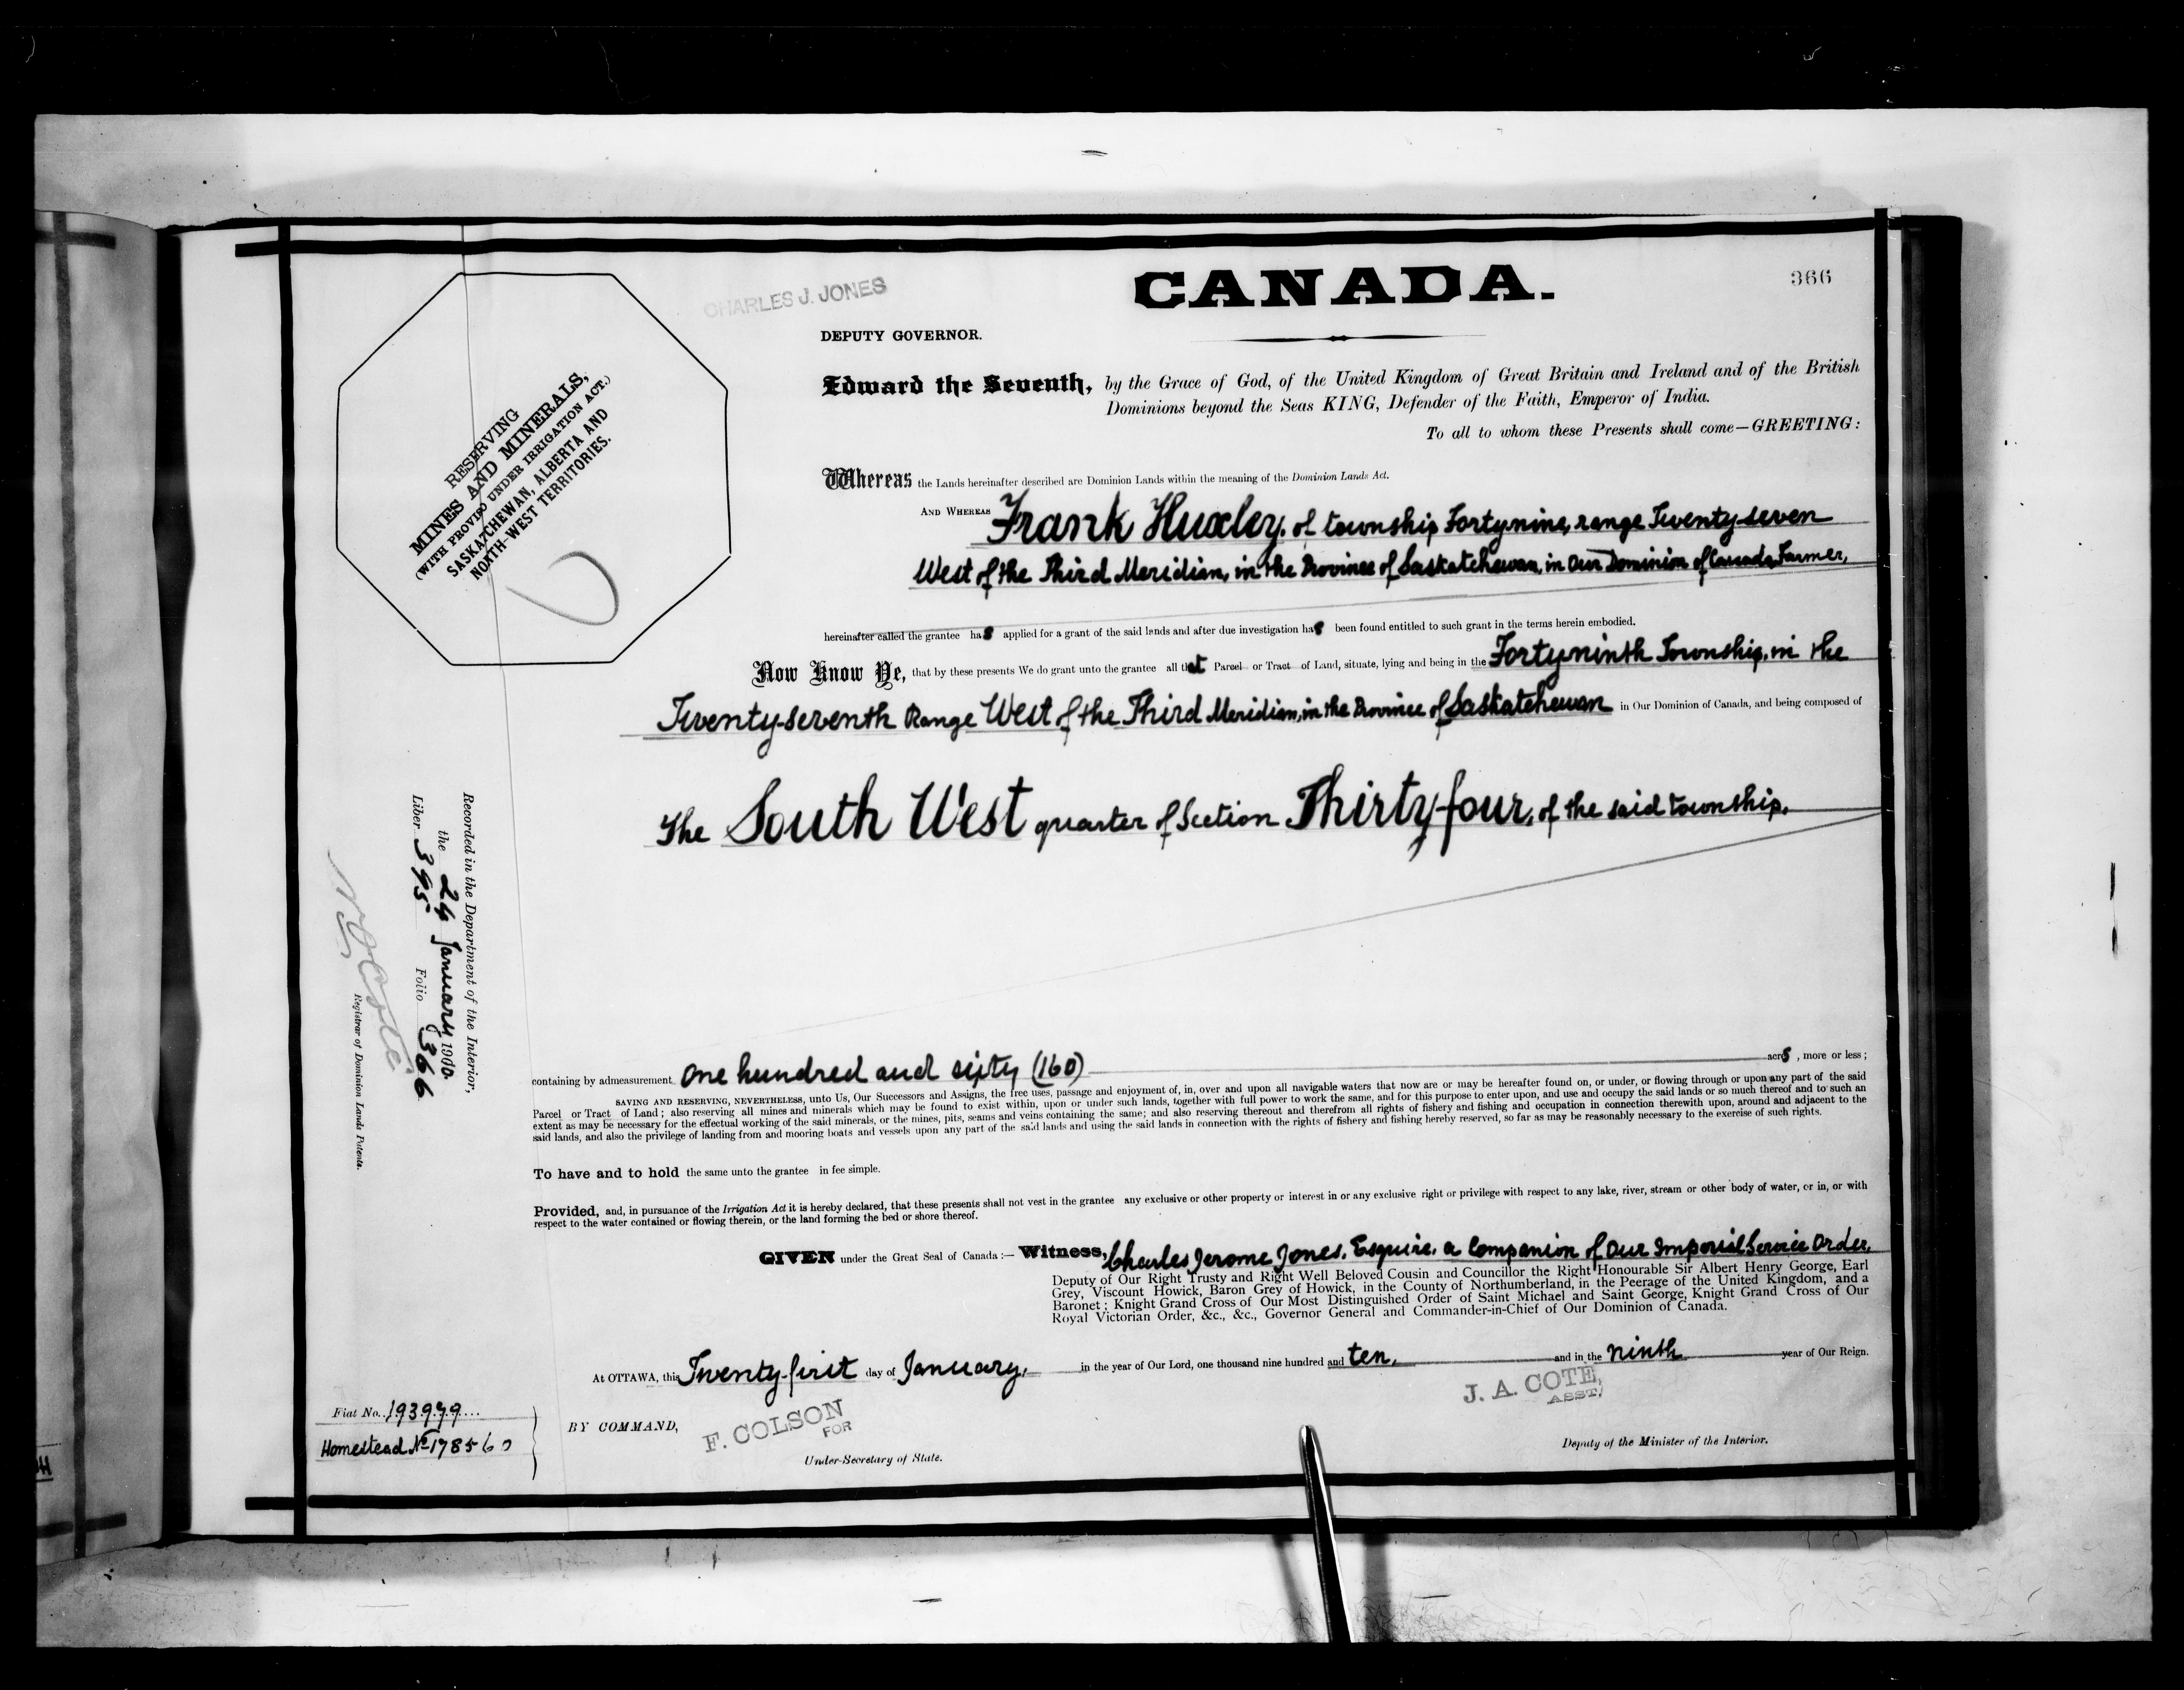 CHARLES J. JONES
CANADA.
366
DEPUTY GOVERNOR.
RESERVING
MINES AND MINERALS,
(WITH PROVISO UNDER IRRIGATION ACT.)
SASKATCHEWAN, ALBERTA AND
NORTH-WEST TERRITORIES.
Edward the Seventh, by the Grace of God, of the United Kingdom of Great Britain and Ireland and of the British
Dominions beyond the Seas KING, Defender of the Faith, Emperor of India.
To all to whom these Presents shall come—GREETING:
Whereas the Lands hereinafter described are Dominion Lands within the meaning of the Dominion Lands Act.
AND WHEREAS Frank Huxley, of township Forty-nine, range Twenty-seven
West of the Third Meridian, in the Province of Saskatchewan, in Our Dominion of Canada, Farmer,
hereinafter called the grantee has applied for a grant of the said lands and after due investigation has been found entitled to such grant in the terms herein embodied.
Now Know Ye, that by these presents We do grant unto the grantee all that Parcel or Tract of Land, situate, lying and being in the Forty-ninth Township, in the
Twenty-seventh Range West of the Third Meridian, in the Province of Saskatchewan in Our Dominion of Canada, and being composed of
The South West quarter of Section Thirty-four, of the said township.
containing by admeasurement one hundred and sixty (160) acres, more or less;
SAVING AND RESERVING, NEVERTHELESS, unto Us, Our Successors and Assigns, the free uses, passage and enjoyment of, in, over and upon all navigable waters that now are or may be hereafter found on, or under, or flowing through or upon any part of the said
Parcel or Tract of Land; also reserving all mines and minerals which may be found to exist within, upon or under such lands, together with full power to work the same, and for this purpose to enter upon, and use and occupy the said lands or so much thereof and to such an
extent as may be necessary for the effectual working of the said minerals, or the mines, pits, seams and veins containing the same; and also reserving thereout and therefrom all rights of fishery and fishing and occupation in connection therewith upon, around and adjacent to the
said lands, and also the privilege of landing from and mooring boats and vessels upon any part of the said lands and using the said lands in connection with the rights of fishery and fishing hereby reserved, so far as may be reasonably necessary to the exercise of such rights.
To have and to hold the same unto the grantee in fee simple.
Provided, and, in pursuance of the Irrigation Act it is hereby declared, that these presents shall not vest in the grantee any exclusive or other property or interest in or any exclusive right or privilege with respect to any lake, river, stream or other body of water, or in, or with
respect to the water contained or flowing therein, or the land forming the bed or shore thereof.
GIVEN under the Great Seal of Canada:— Witness, Charles Jerome Jones, Esquire, a Companion of Our Imperial Service Order,
Deputy of Our Right Trusty and Right Well Beloved Cousin and Councillor the Right Honourable Sir Albert Henry George, Earl
Grey, Viscount Howick, Baron Grey of Howick, in the County of Northumberland, in the Peerage of the United Kingdom, and a
Baronet; Knight Grand Cross of Our Most Distinguished Order of Saint Michael and Saint George, Knight Grand Cross of Our
Royal Victorian Order, &c., &c., Governor General and Commander-in-Chief of Our Dominion of Canada.
At OTTAWA, this Twenty-first day of January, in the year of Our Lord, one thousand nine hundred and ten, and in the ninth year of Our Reign.
J. A. COTE,
ASST.
BY COMMAND,
F. COLSON
FOR
Under-Secretary of State.
Deputy of the Minister of the Interior.
Fiat No. 193979
Homestead No 178560
Recorded in the Department of the Interior,
the 24 January 1910.
Liber 395 Folio 366
Registrar of Dominion Lands Patents.